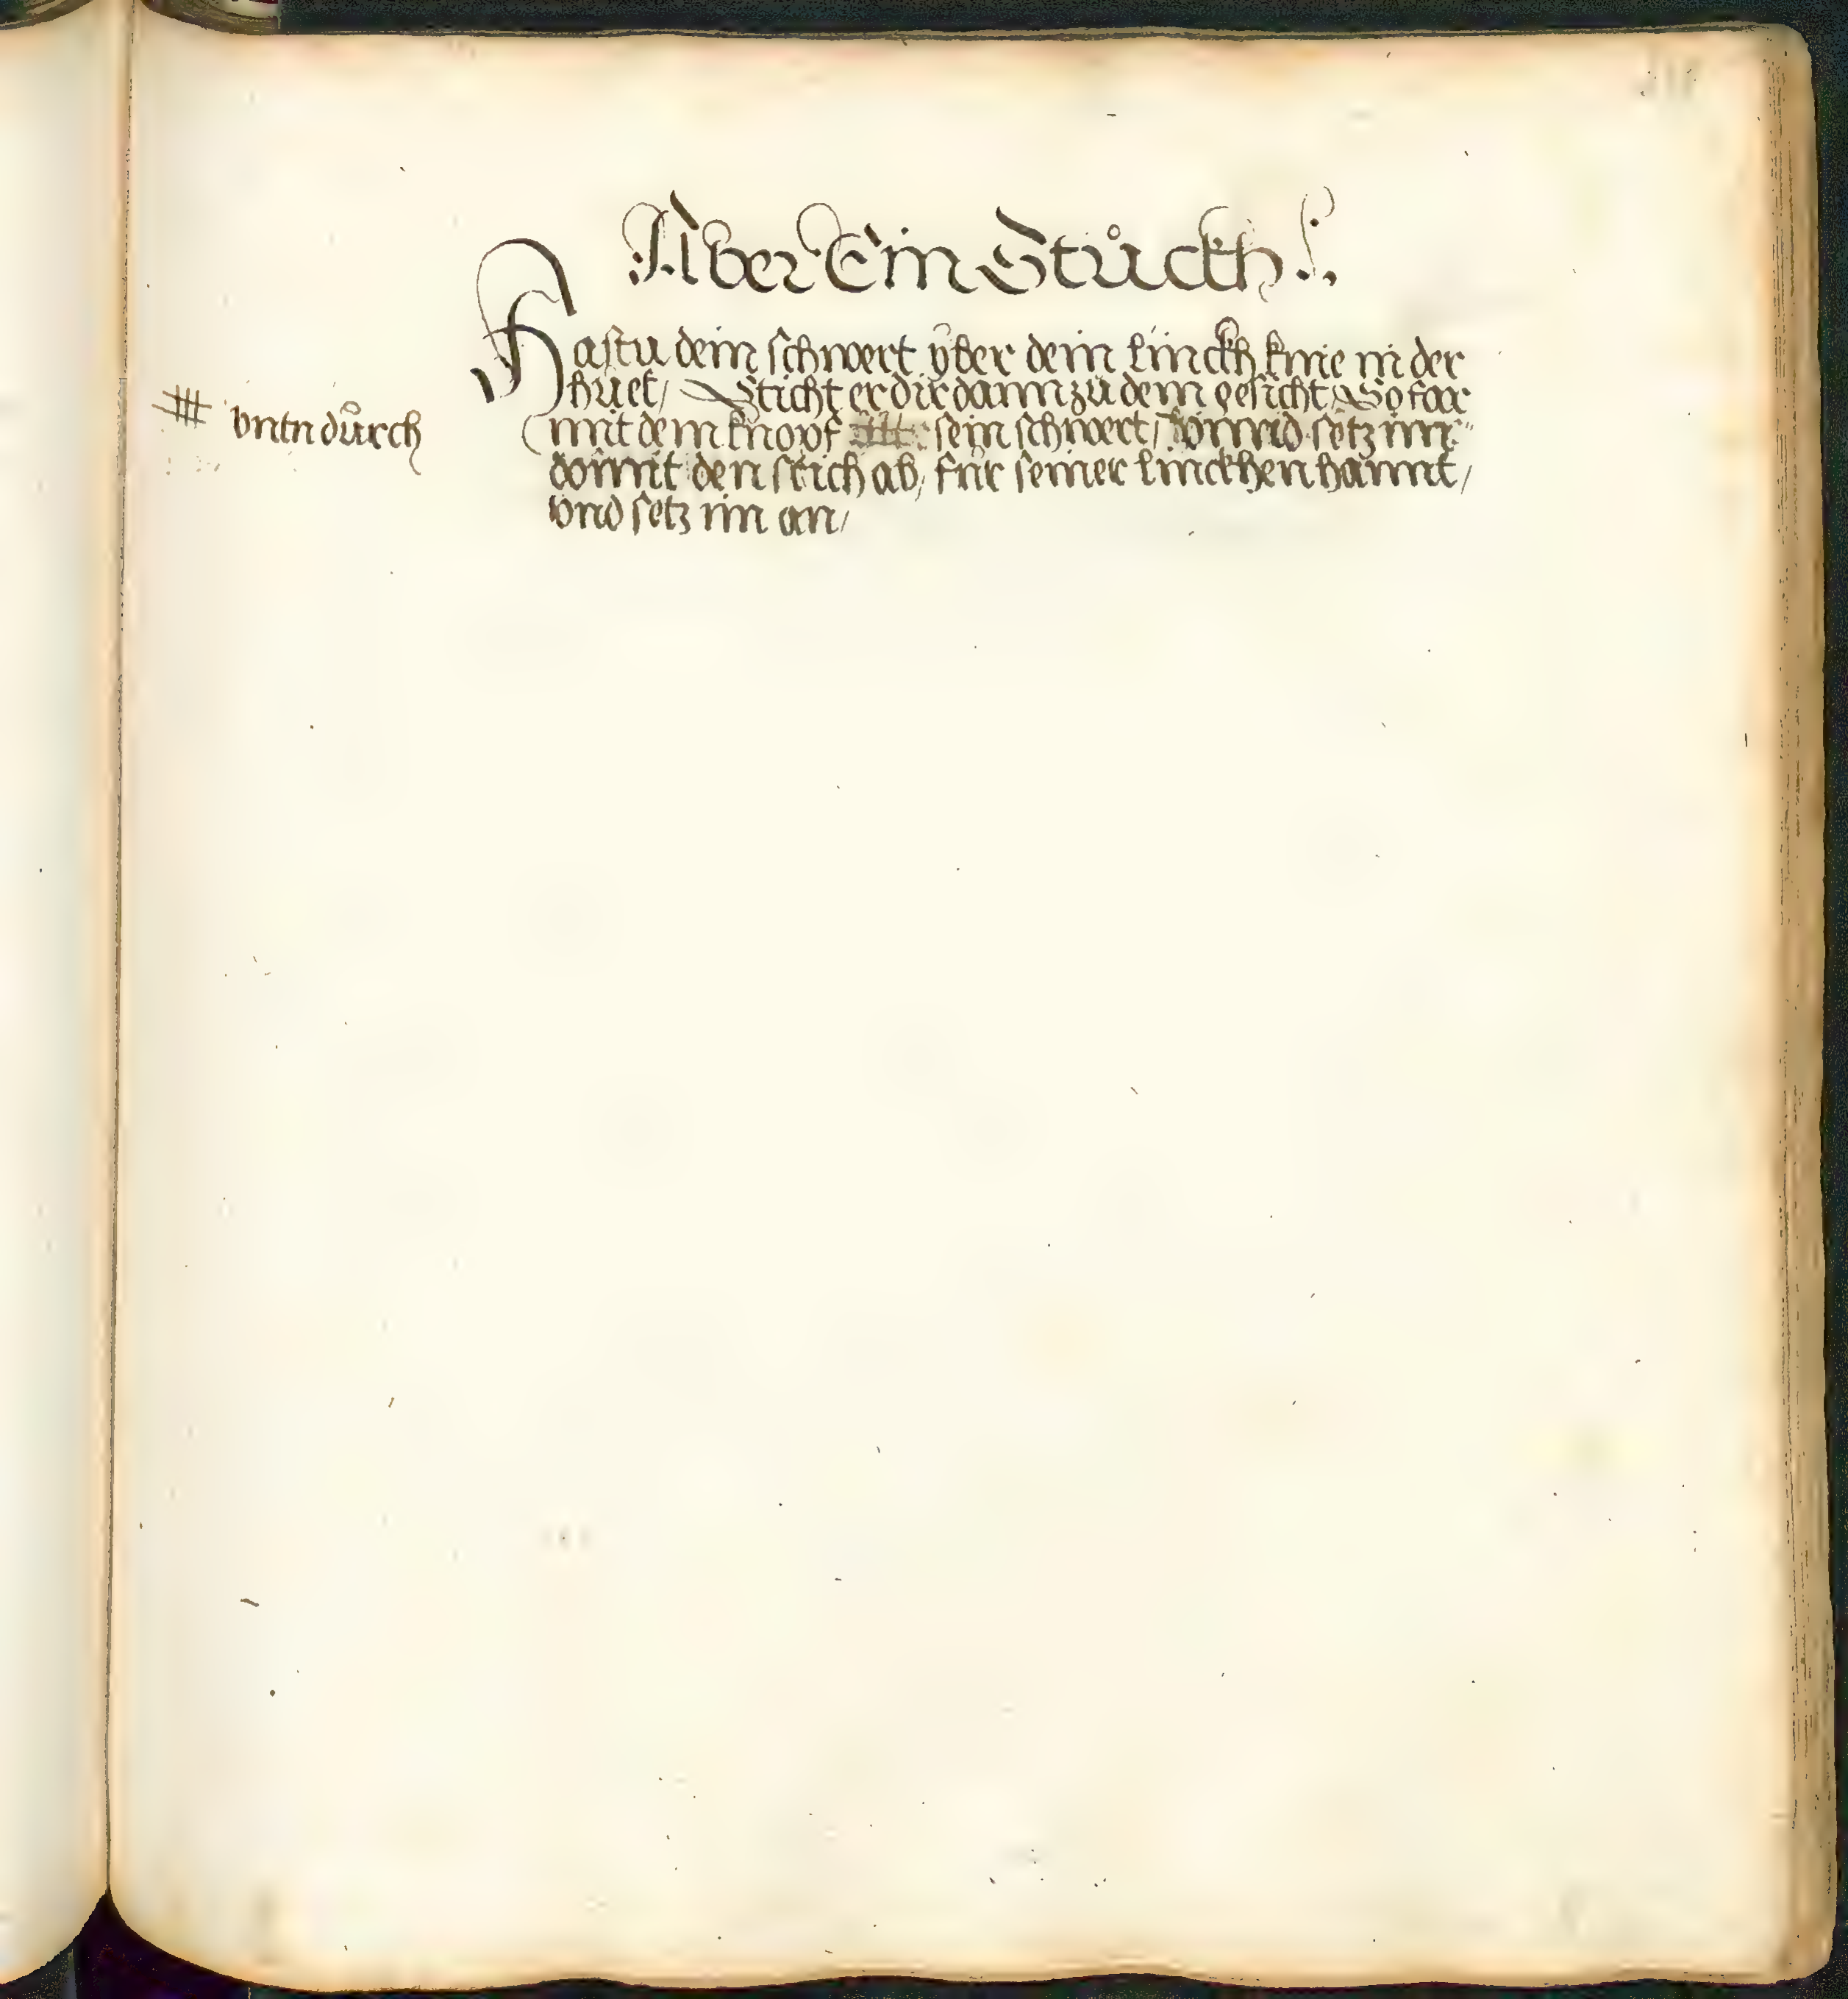 Aber Ein Stůckh
Hastu dein schwert yber dein linckh knie in der
huet / Sticht er dir dann zu dem gesicht So far
mit dem knopf sein schwert / vnnd setz im
domit den stich ab, für seiner linckhen hannt /
vnd setz im an /
vntn důrch